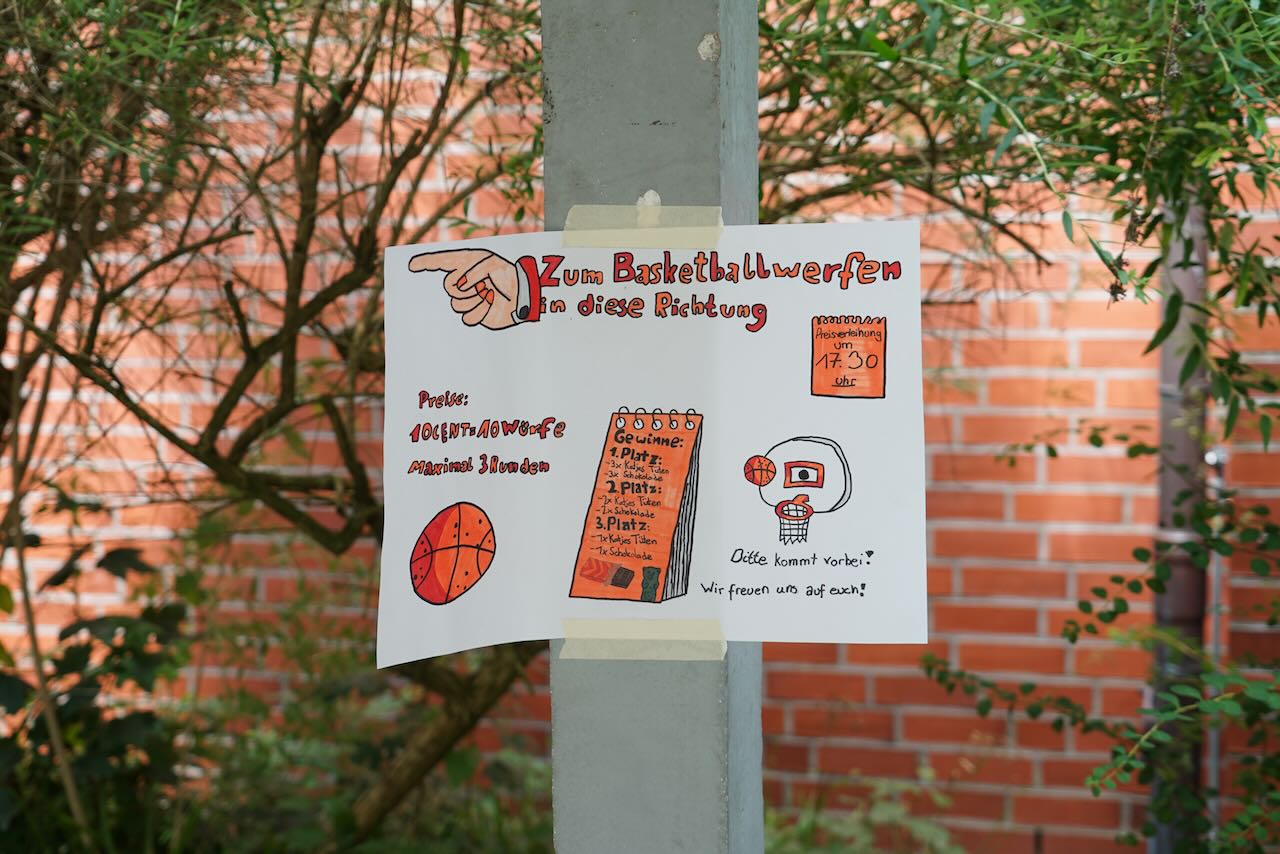 Zum Basketballwerfen
in diese Richtung
Preisverleihung
um
17.30
uhr
Preise:
10CENT=10Würfe
Maximal 3Runden
Gewinne:
1.Platz:
-3x Katjes Tüten
-3x Schokolade
2.Platz:
-2x Katjes Tüten
-2x Schokolade
3.Platz:
-1x Katjes Tüten
-1x Schokolade
Bitte kommt vorbei!
Wir freuen uns auf euch!